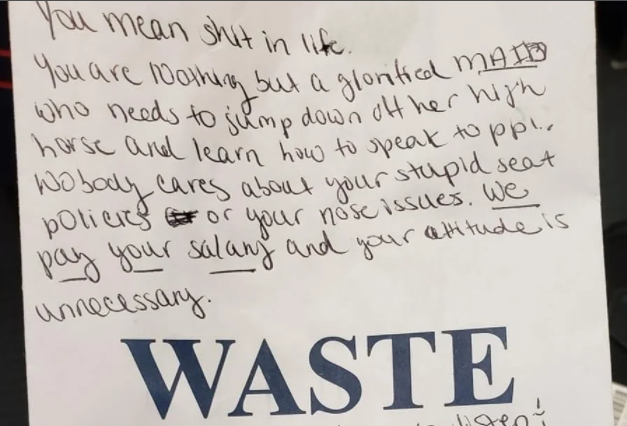 You mean shit in life.
You are Noothing but a glorified MAID
who needs to jump down off her high
horse and learn how to speak to ppl.
Nobody cares about your stupid seat
policies or your nose issues. We
pay your salary and your attitude is
unnecessary.
WASTE
listen!